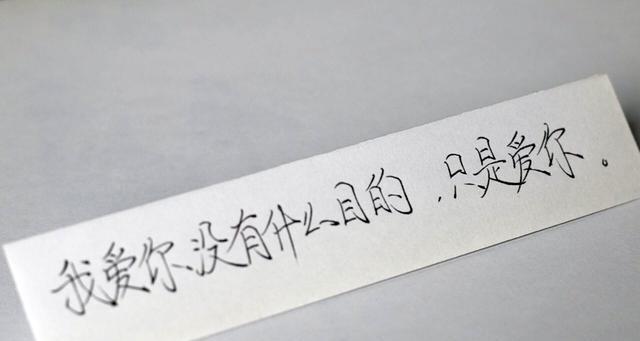 我爱你、没有什么目的，只是爱你。